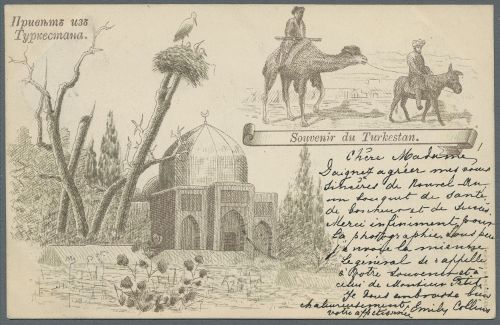 Привѣтъ изъ
Туркестана.
Souvenir du Turkestan.
Chère Madame!
Daignez agréer mes vœux
sincères de Nouvel-An
un bouquet de santé
de bonheur et de succès.
Merci infiniment pour
la photographie. Sous peu
j'envoie la mienne.
Le général se rappelle
à Votre souvenir et à
celui de Monsieur
Je Vous embrasse bien
chaleureusement, Emily Collins
votre affectionnée